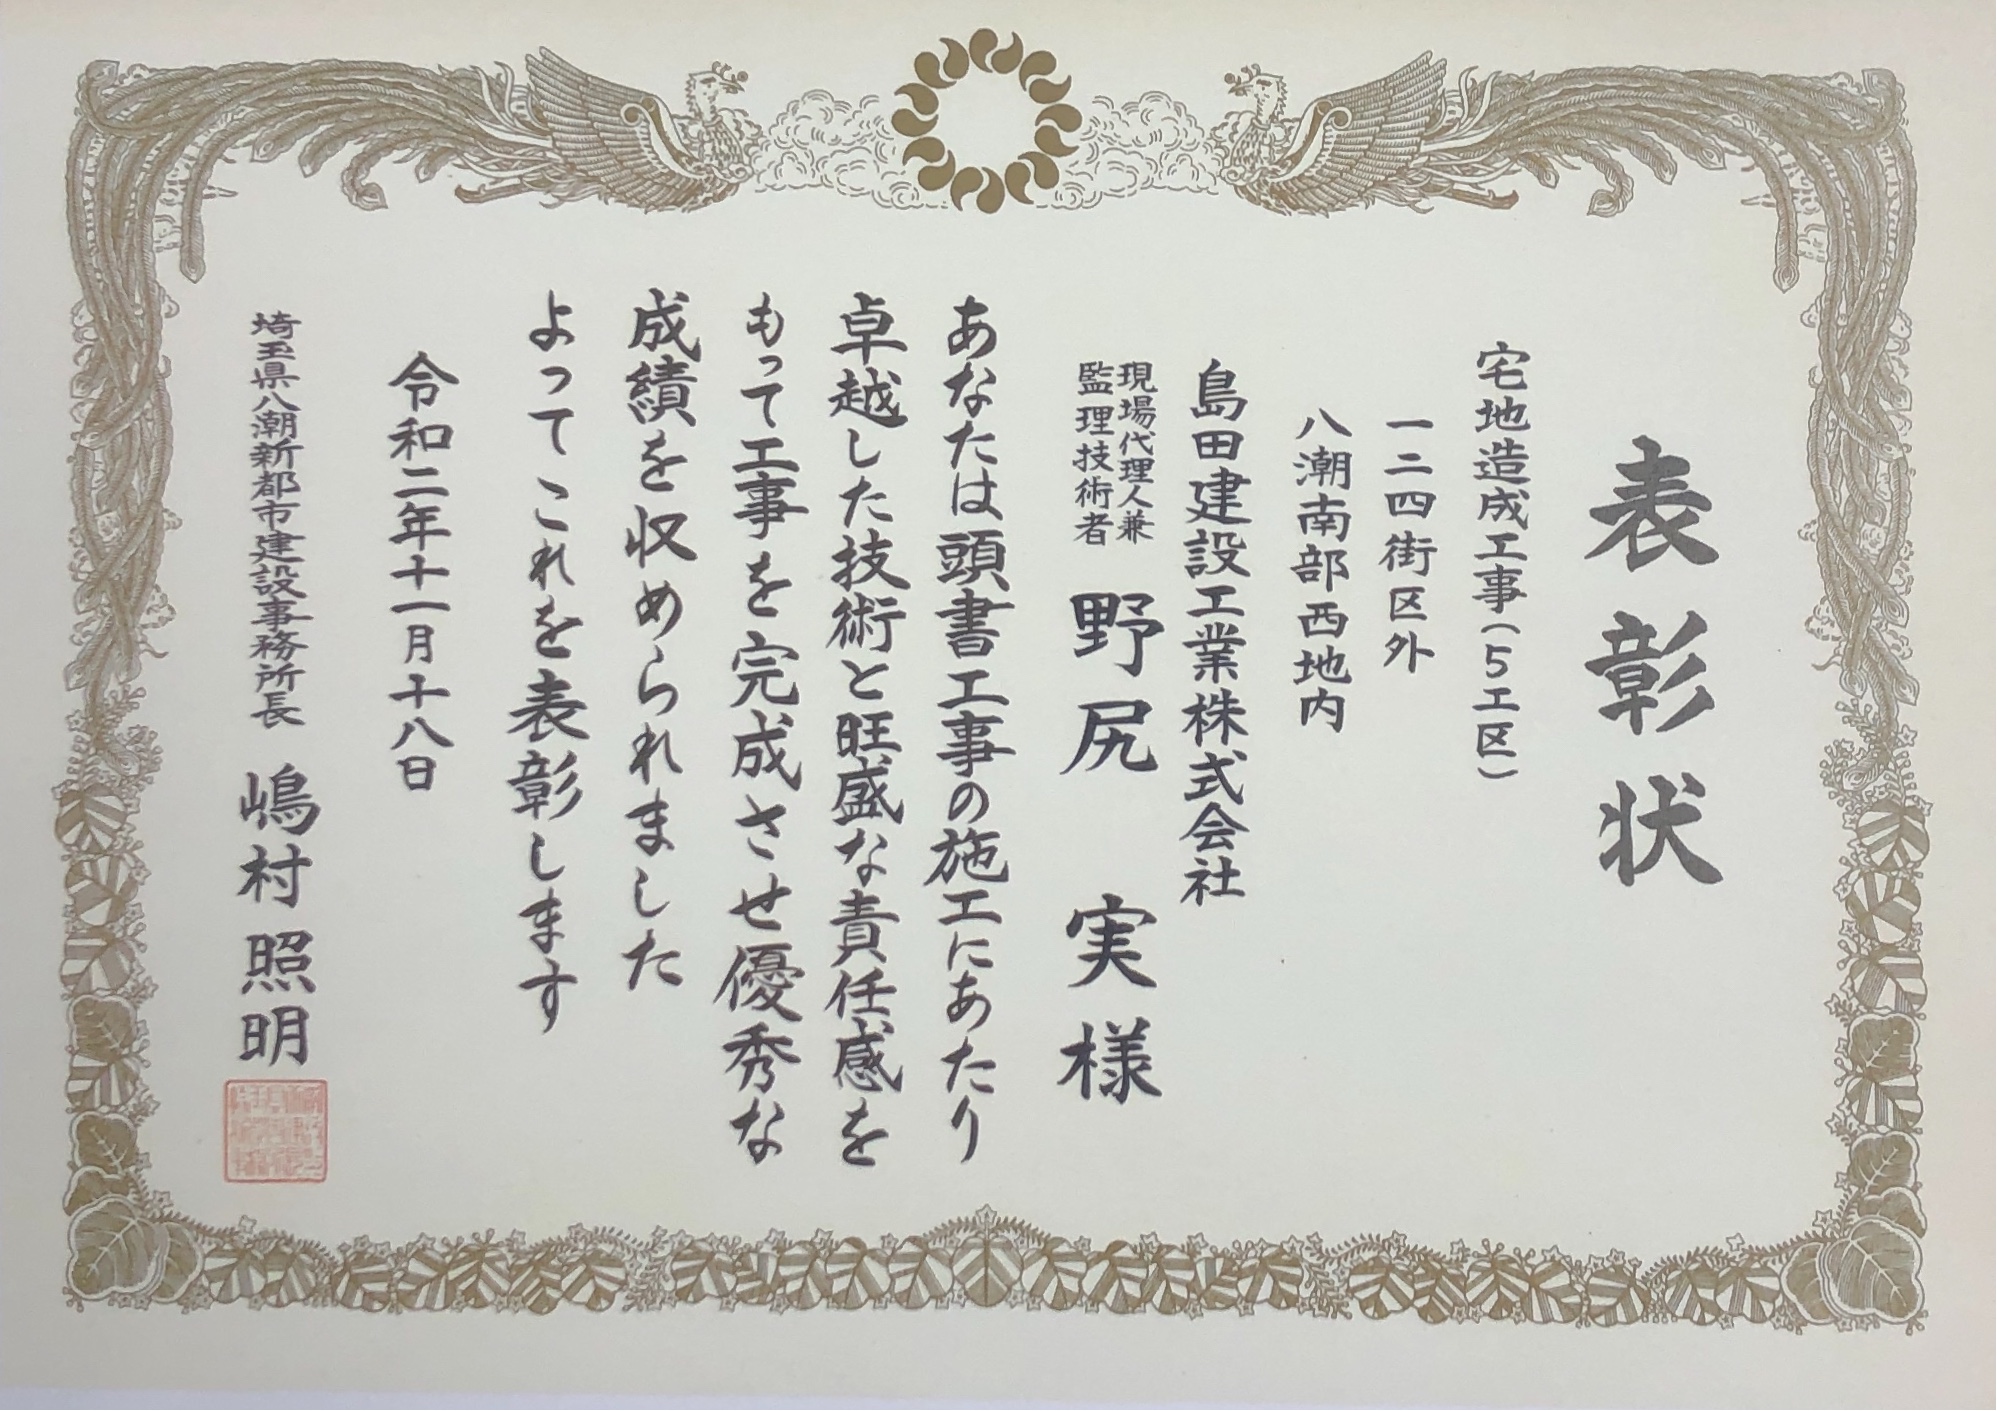 表彰状
宅地造成工事(5工区)
一二四街区外
八潮南部西地内
島田建設工業株式会社
現場代理人兼
監理技術者
野尻 実 様
あなたは頭書工事の施工にあたり
卓越した技術と旺盛な責任感を
もって工事を完成させ優秀な
成績を収められました
よってこれを表彰します
令和二年十一月十八日
埼玉県八潮新都市建設事務所長 嶋村照明